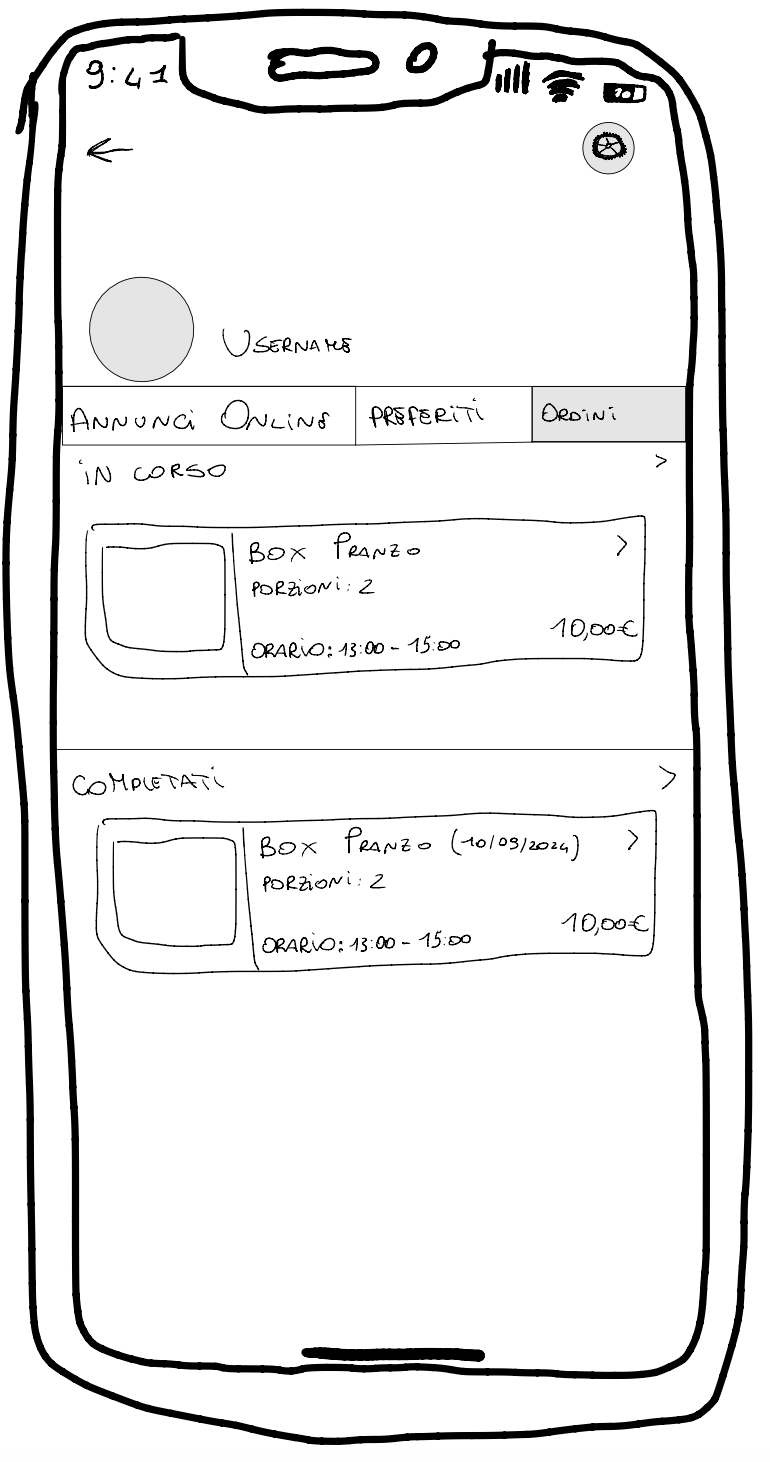 9:41
USERNAME
ANNUNCI ONLINE
PREFERITI
ORDINI
IN CORSO
>
BOX PRANZO
>
PORZIONI: 2
10,00€
ORARIO: 13:00 - 15:00
COMPLETATI
>
BOX PRANZO (10/09/2024)
>
PORZIONI: 2
10,00€
ORARIO: 13:00 - 15:00